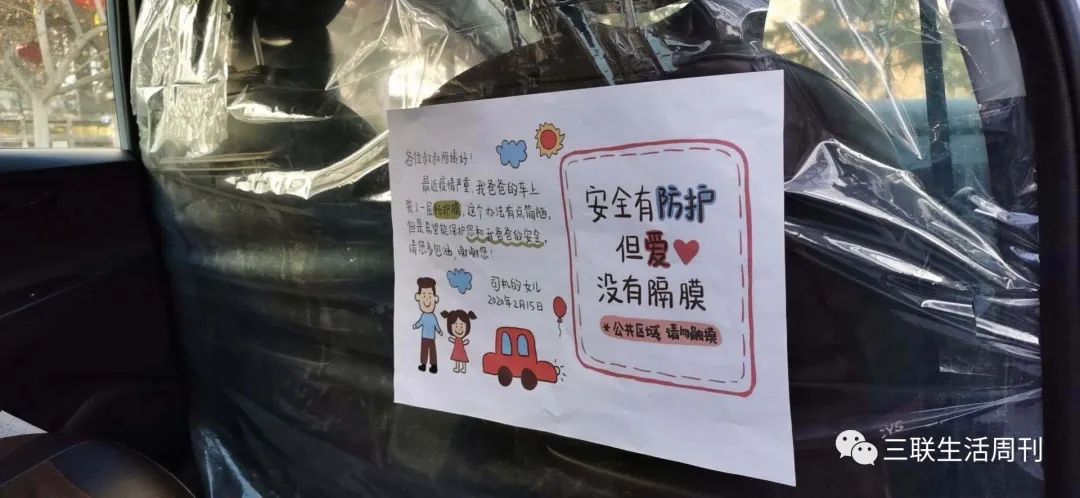 各位叔叔阿姨好！
最近疫情严重，我爸爸的车上
装了一层防护膜，这个办法有点简陋，
但是希望能保护您和我爸爸的安全，
请您多包涵，谢谢您！
司机的女儿
2020年2月15日
安全有防护
但爱
没有隔膜
*公共区域，请勿触摸
三联生活周刊